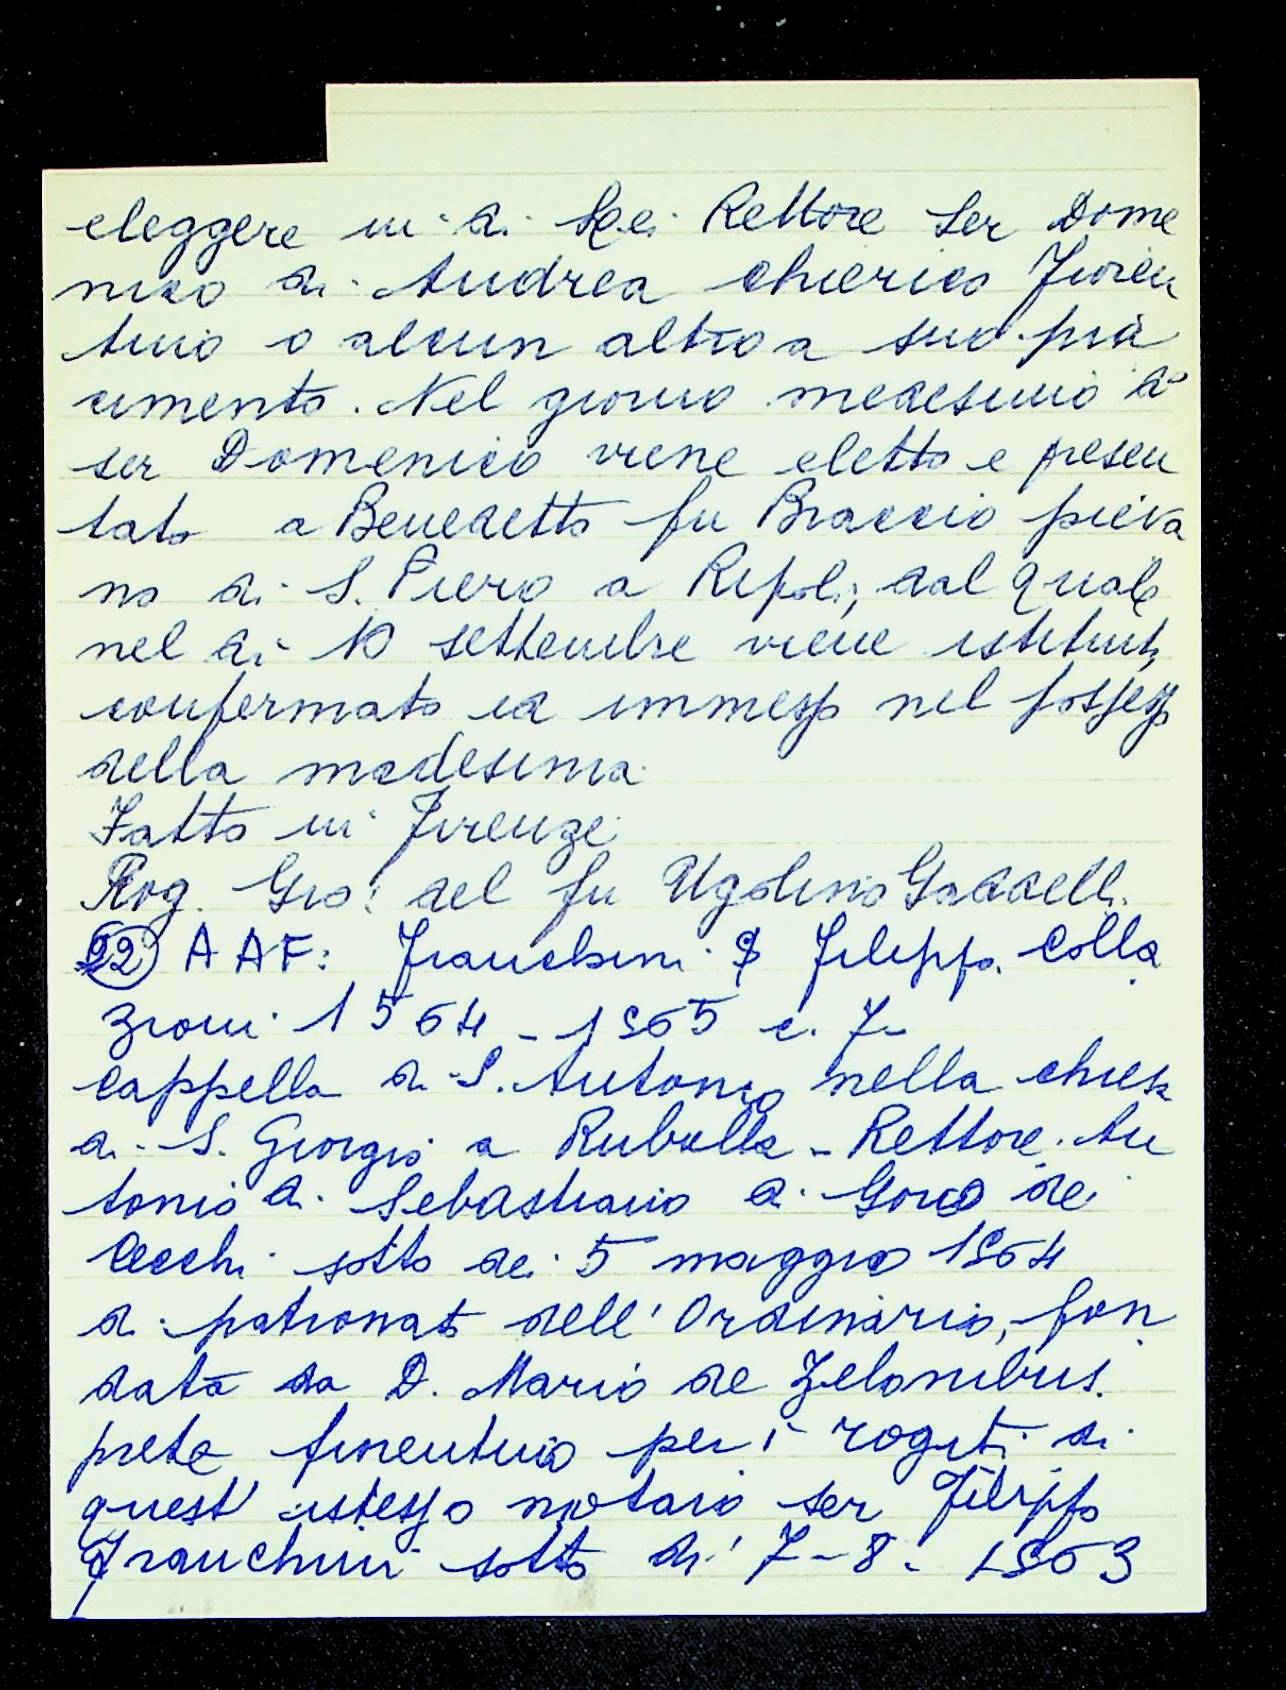 eleggere in di Lei Rettore Ser Dome
nico di Andrea chierico Fioren
tino o alcun altro a suo pia
cimento. Nel giorno medesimo do
ser Domenico viene eletto e presen
tato a Benedetto fu Braccio pieva
no di S. Piero a Ripoli, dal quale
nel dì 10 settembre viene istituito,
confermato ed immesso nel possesso
della medesima
Fatto in Firenze
Rog. Gio: del fu Ugolino Gaddelli.
22) A A F: Franchini Filippo. Colla
zioni 1564-1565 c. 7-
Cappella di S. Antonio nella chiesa
di S. Giorgio a Ruballa - Rettore An
tonio di Sebastiano di Goro de
Cecchi sotto dei 5 maggio 1564
di patronato dell'Ordinario, fon
data da D. Mario de Zelonibus
prete fiorentino per i rogiti di
quest'istesso notaio ser Filippo
Franchini sotto di' 7-8-1563